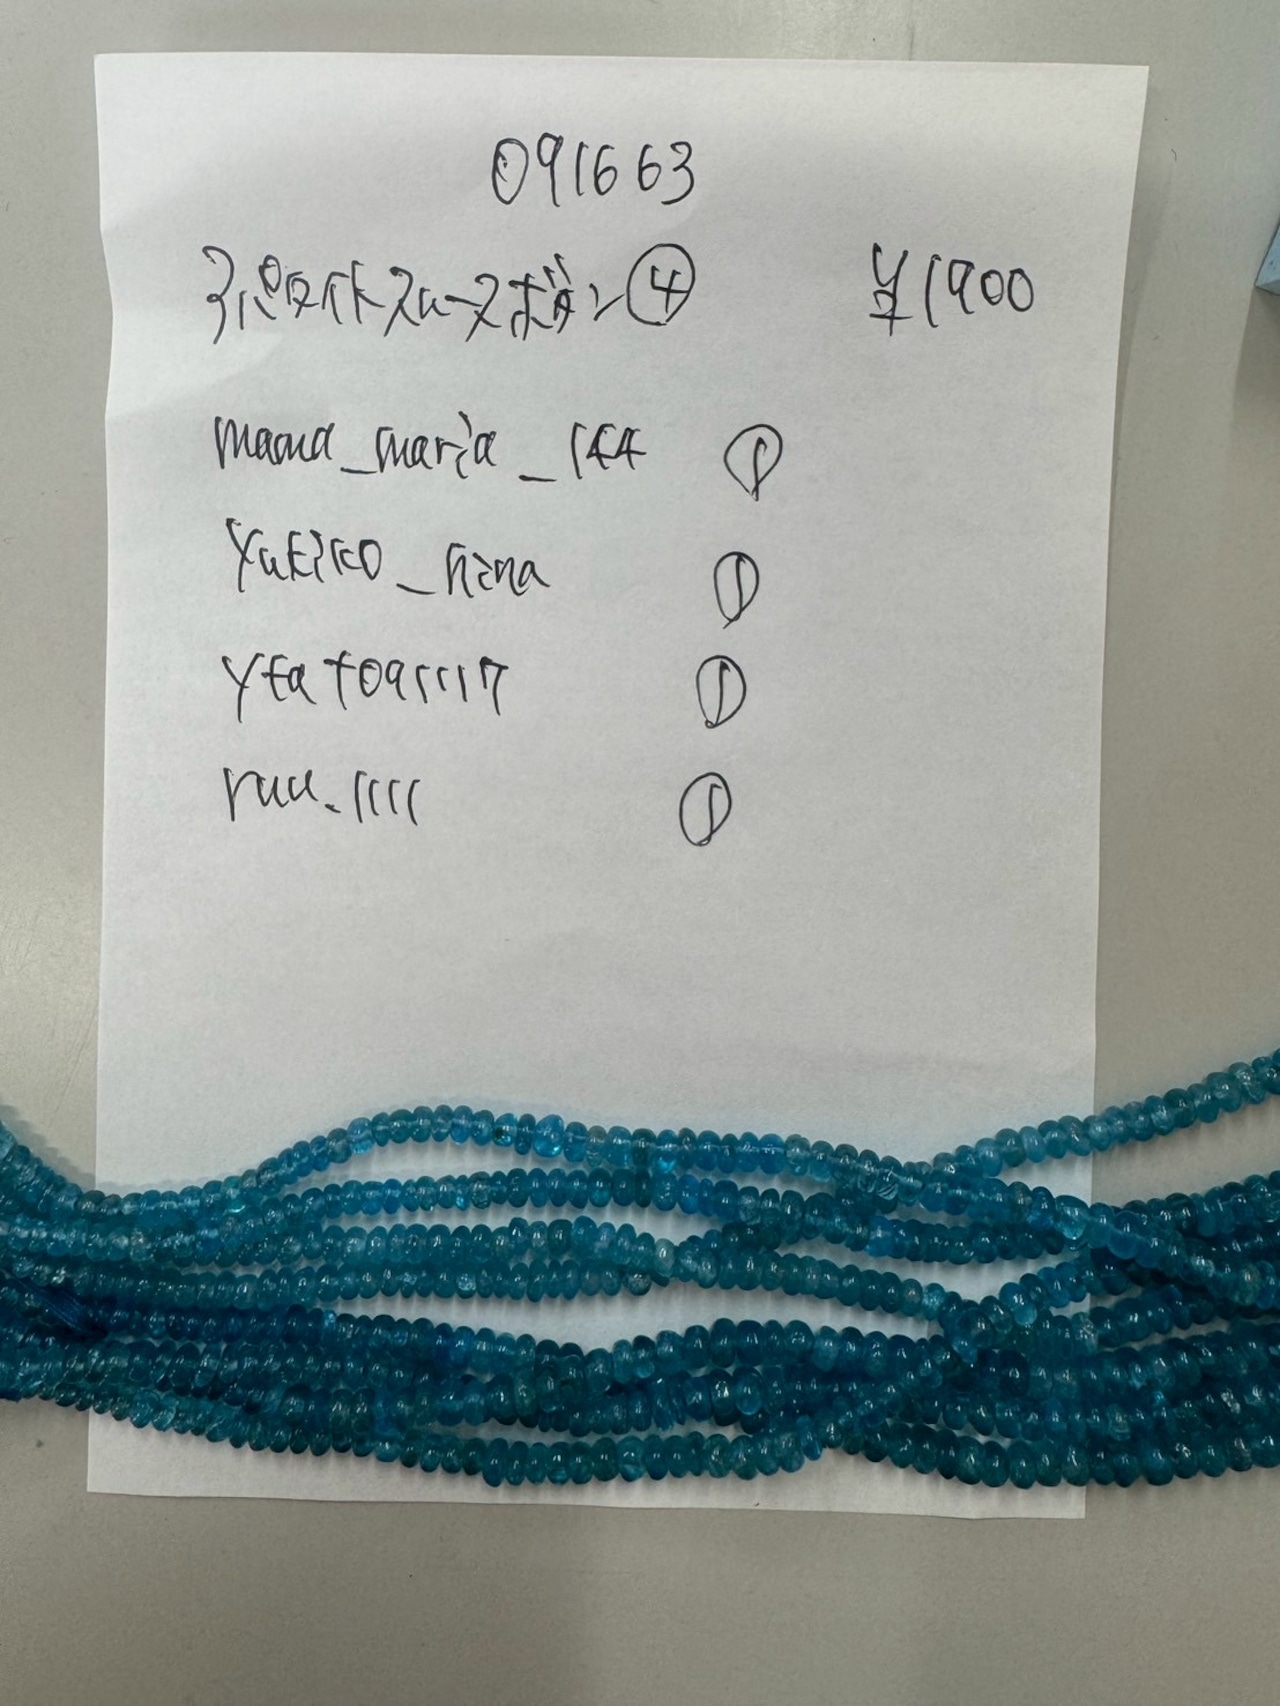 091663
アパタイトスムースボタン④ ¥1900
mama_maria_144 ①
yukiko_hina ①
ytat091117 ①
ruu._1111 ①